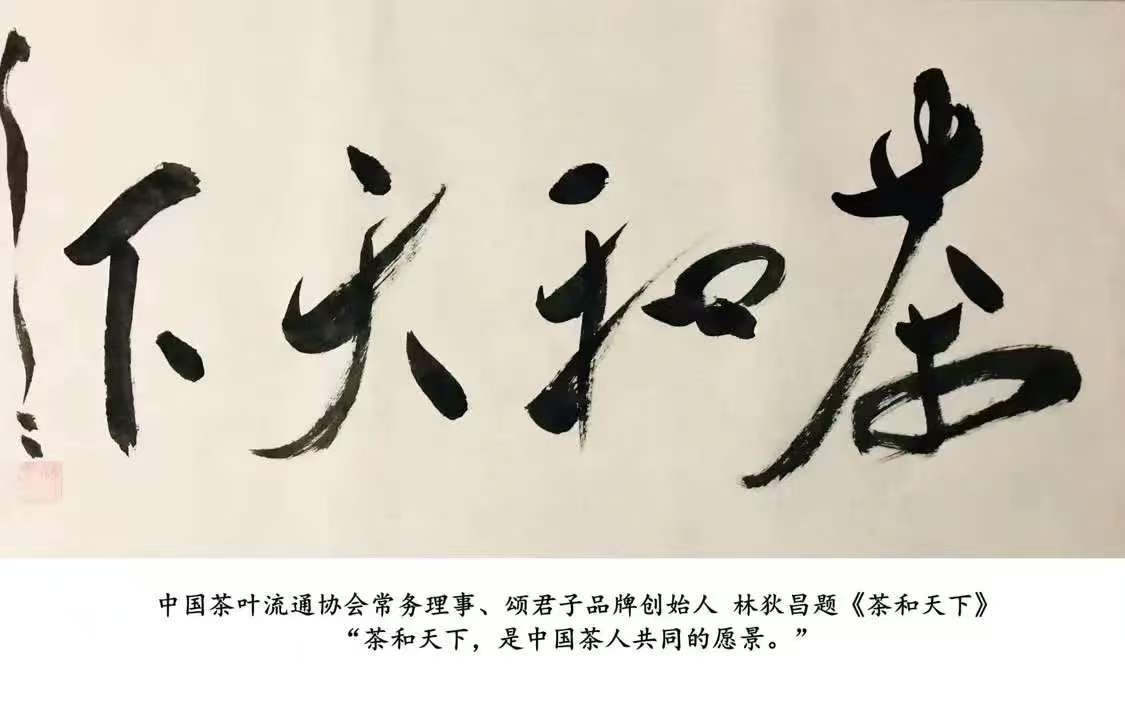 茶和天下
中国茶叶流通协会常务理事、颂君子品牌创始人 林狄昌题《茶和天下》
“茶和天下，是中国茶人共同的愿景。”